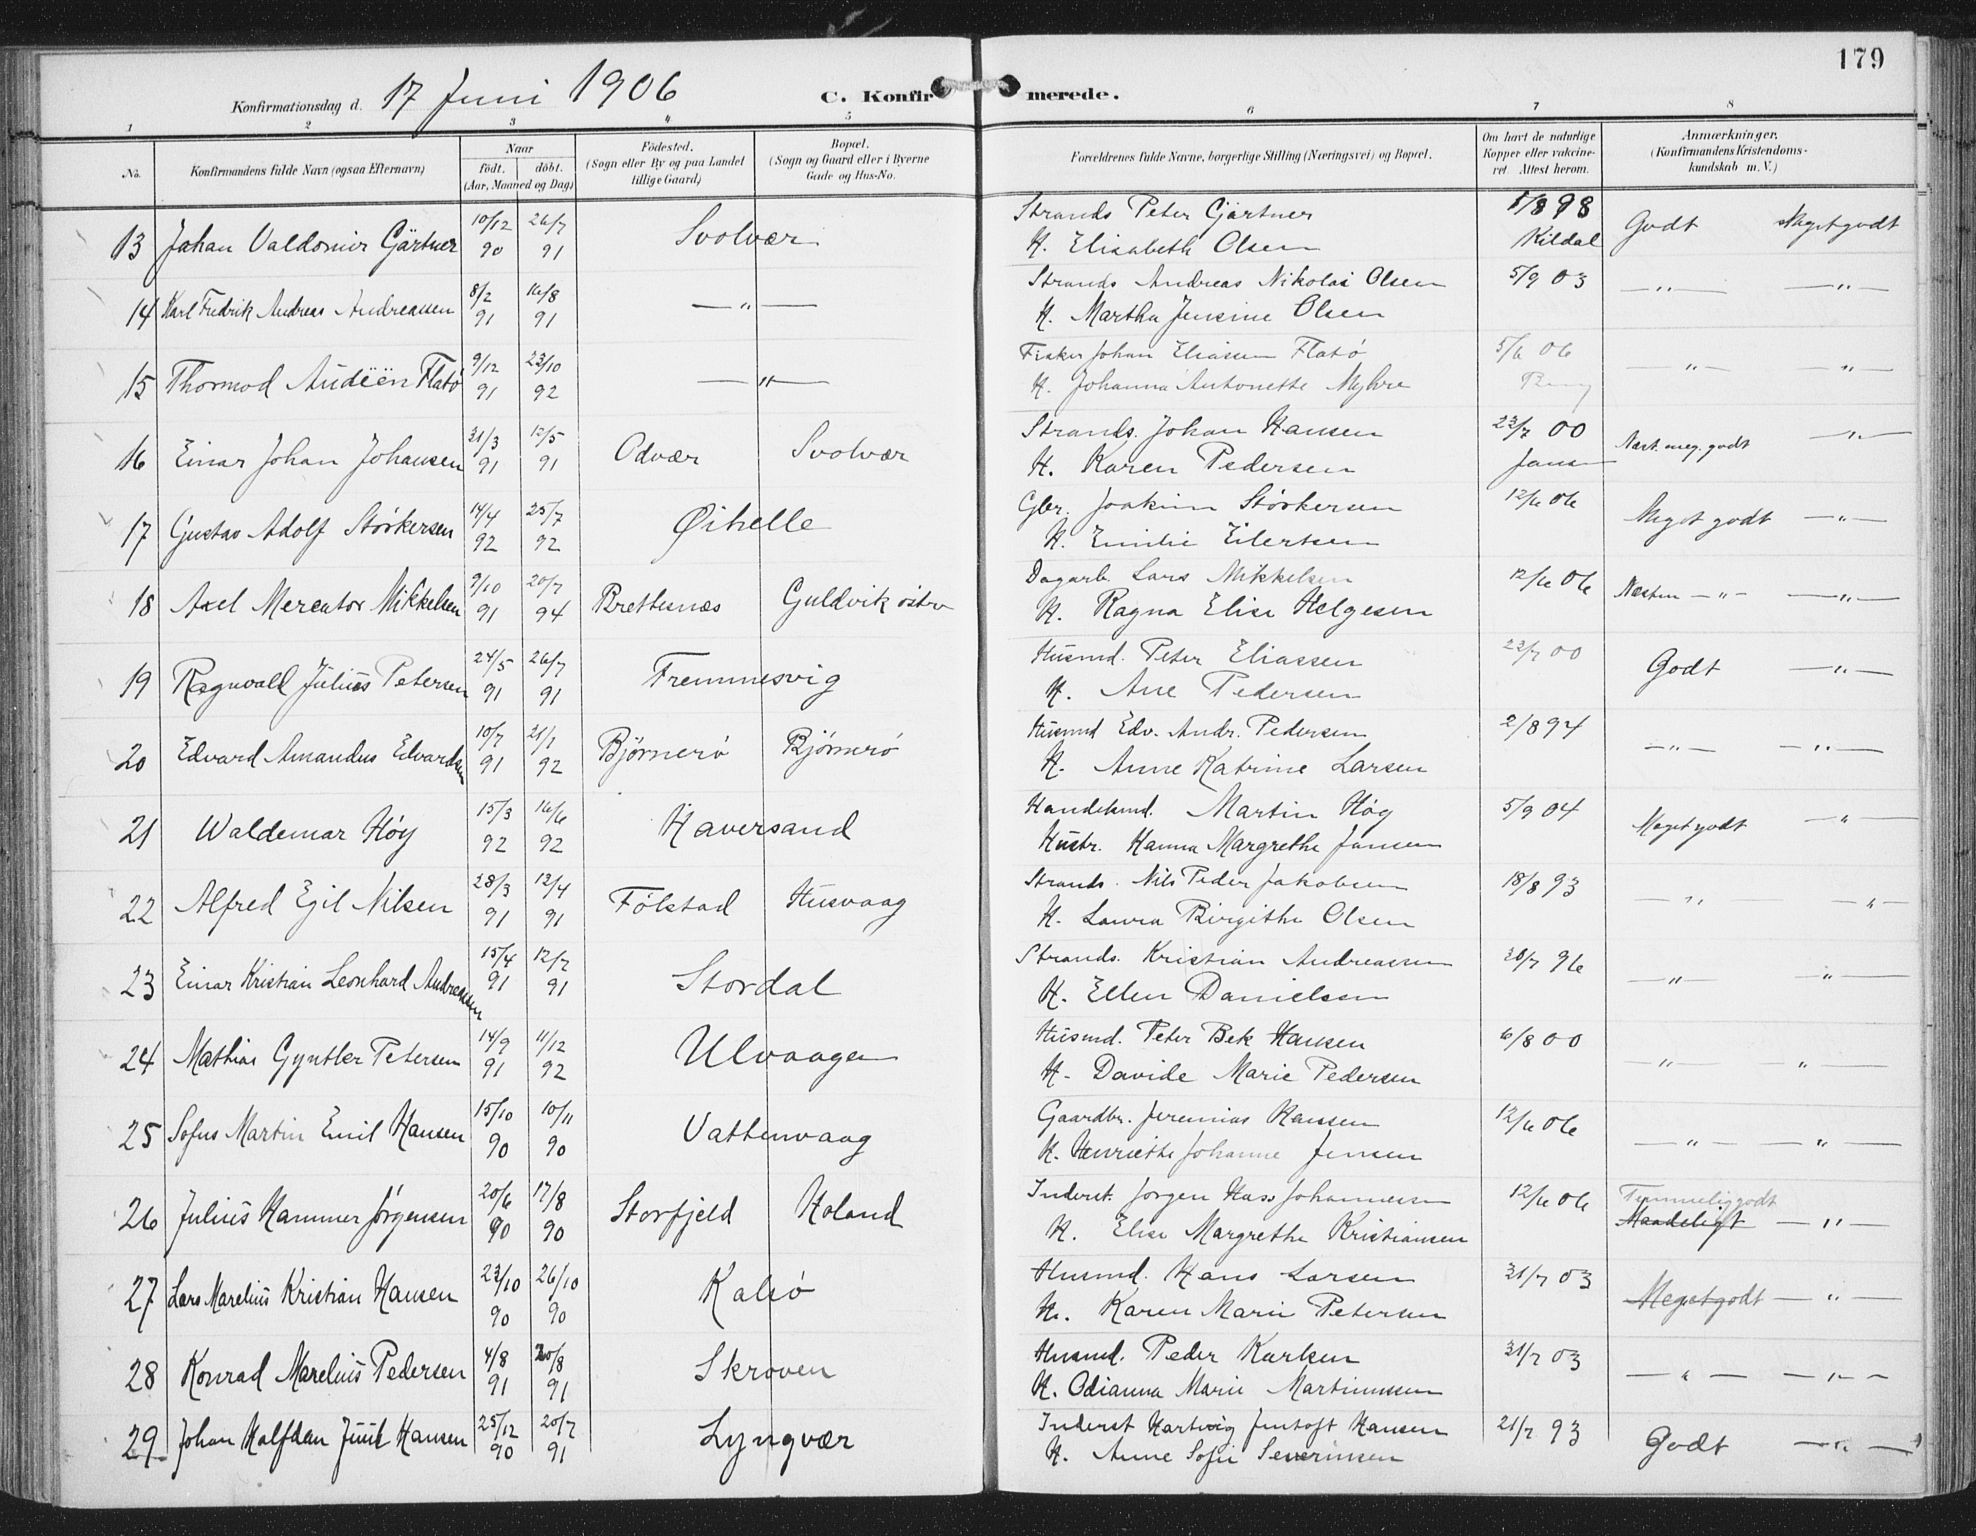 179
Konfirmationsdag d. 17 Juni 1906 C. Konfirmerede.
1 2 3 4 5 6 7 8
No. Konfirmandens fulde Navn (ogsaa Efternavn) Naar födt. döbt. (Aar, Maaned og Dag) Födested. (Sogn eller By og paa Landet tillige Gaard) Bopæl. (Sogn og Gaard eller i Byerne Gade og Hus-No. Forældrenes fulde Navne, borgerlige Stilling (Næringsvei) og Bopæl. Om havt de naturlige Kopper eller vakcineret. Attest herom. Anmærkninger. (Konfirmandens Kristendomskundskab m. V.)
13 Johan Valdomir Gärtner 10/12 90 26/7 91 Svolvær Strands Peter Gjärtner 5/8 98 Godt Megetgodt
H. Elisabeth Olsen Kildal
14 Karl Fredrik Andreas Andreassen 8/2 91 16/8 91 —"— Strands Andreas Nikolai Olsen 5/9 03 —"— —"—
H. Martha Jensine Olsen
15 Thormod Audëën Flatö 9/12 91 23/10 92 —"— Fisker Johan Eliassen Flatö 5/6 06 —"— —"—
H. Johanna Antonette Myhre
16 Einar Johan Johansen 31/3 91 12/5 91 Odvær Svolvær Strands. Johan Hansen 23/7 00 Næst. meg. godt —"—
H. Karen Pedersen
17 Gustav Adolf Störkersen 14/4 92 25/7 92 Øihelle Gbr. Joakim Störkersen 12/6 06 Meget godt —"—
H. Emilie Eilertsen
18 Axel Mercator Mikkelsen 9/10 91 20/7 94 Brettesnæs Guldvik östre Dagarb. Lars Mikkelsen 12/6 06 Næsten —"— —"—
H. Ragna Elise Helgesen
19 Ragnvall Julius Petersen 24/5 91 26/7 91 Fremmesvig Husmd. Peter Eliassen 23/7 00 Godt —"—
H. Ane Pedersen
20 Edvard Amandus Edvardsen 10/7 91 21/7 92 Björnerö Björnerö Husmd Edv. Andr. Pedersen 2/8 94 —"— —"—
H. Anne Katrine Larsen
21 Waldemar Höy 15/3 92 16/6 92 Haversand Handelsmd. Martin Hög 5/9 04 Megetgodt —"—
Hustr. Hanna Margrethe Jansen
22 Alfred Egil Nilsen 28/3 91 12/4 91 Fölstad Husvaag Strands. Nils Peder Jakobsen 18/8 93 —"— —"—
H. Laura Birgithe Olsen
23 Einar Kristian Leonhard Andreassen 15/4 91 12/7 91 Stordal Strands. Kristian Andreassen 30/7 96 —"— —"—
H. Ellen Danielsen
24 Mathias Gyntler Petersen 14/9 91 11/12 92 Ulvaagen Husmd. Peter Bek Hansen 6/8 00 —"— —"—
H. Davide Marie Pedersen
25 Sofus Martin Emil Hansen 15/10 90 10/11 90 Vattenvaag Gaardbr. Jeremias Hansen 12/6 06 —"— —"—
H. Henriette Johanne Jensen
26 Julius Hammer Jörgensen 20/6 90 17/8 90 Storfjeld Holand Inderst. Jörgen Hass Johannessen 12/6 06 Temmeliggodt Maadeligt —"—
H. Elise Margrethe Kristiansen
27 Lars Marelius Kristian Hansen 23/10 90 26/10 90 Kalsö Husmd. Hans Larsen 31/7 03 Megetgodt —"—
H. Karen Marie Petersen
28 Konrad Marelius Pedersen 4/8 91 20/8 91 Skroven Husmd. Peder Karlsen 31/7 03 —"— —"—
H. Odianna Marie Martinussen
29 Johan Halfdan Juul Hansen 25/12 90 20/7 91 Lyngvær Inderst Hartvig Jentoft Hansen 21/7 93 Godt —"—
H. Anne Sofie Severinsen